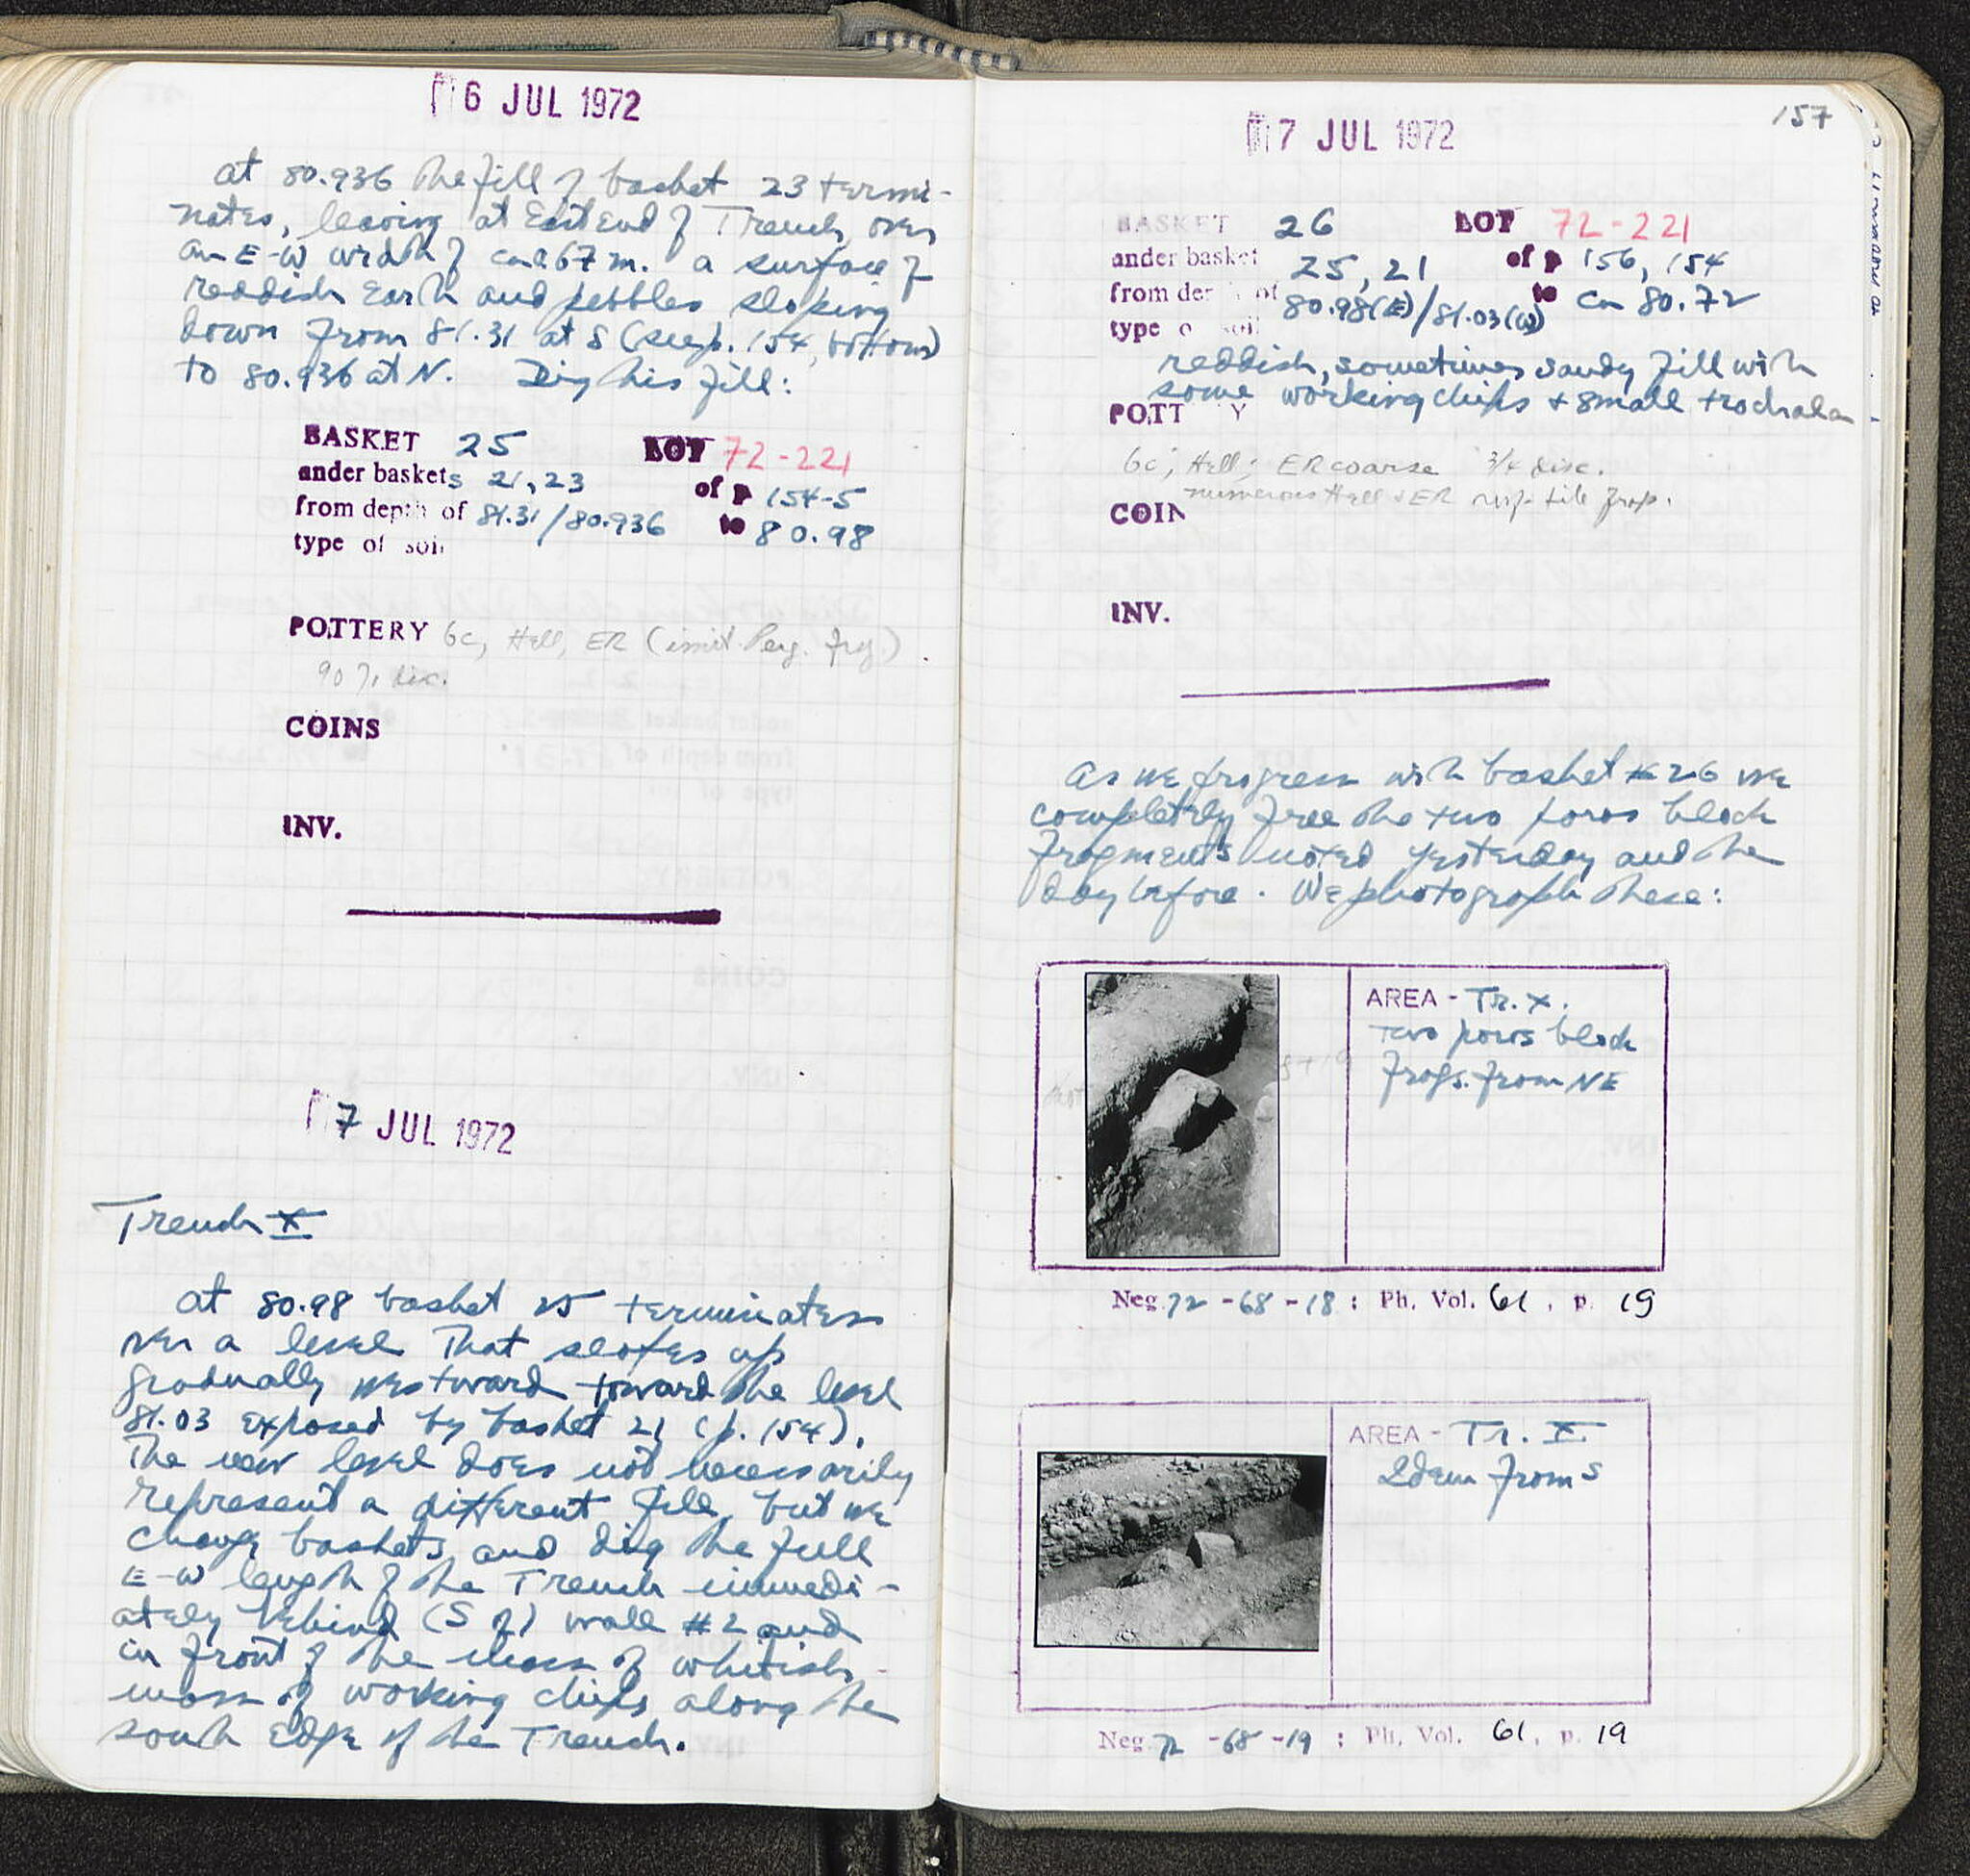 6 JUL 1972
at 80.936 the fill of basket 23 termi-
nates, leaving at East end of Trench, over
an E-W width of ca 0.67 m. a surface of
reddish earth and pebbles sloping
down from 81.31 at S (see p. 154, bottom)
to 80.936 at N. Dig this fill:
BASKET 25 LOT 72-221
under baskets 21, 23 of p 154-5
from depth of 81.31/80.936 to 80.98
type of soil
POTTERY 6c, Hell, ER (imit. Perg. frg.)
90% disc.
COINS
INV.
7 JUL 1972
Trench X
at 80.98 basket 25 terminates
over a level that slopes up
gradually westward toward the level
81.03 exposed by basket 21 (p. 154).
The new level does not necessarily
represent a different fill, but we
change baskets and dig the full
E-W length of the Trench immedi-
ately behind (S of) wall #2 and
in front of the mass of whitish
mass of working chips along the
south edge of the Trench.
157
7 JUL 1972
BASKET 26 LOT 72-221
under basket 25, 21 of p 156, 154
from depth of 80.98(E)/81.03(W) to ca 80.72
type of soil
reddish, sometimes sandy fill with
some working chips + small trochala
POTTERY
6c; Hell; ER coarse 3/4 disc.
numerous Hell + ER roof tile frgs.
COIN
INV.
As we progress with basket #26 we
completely free the two poros block
fragments noted yesterday and the
day before. We photograph these:
AREA - Tr. X.
two poros block
frags. from NE
Neg. 72-68-18 ; Ph. Vol. 61, p. 19
AREA - Tr. X
Idem from S
Neg. 72-68-19 ; Ph. Vol. 61, p. 19